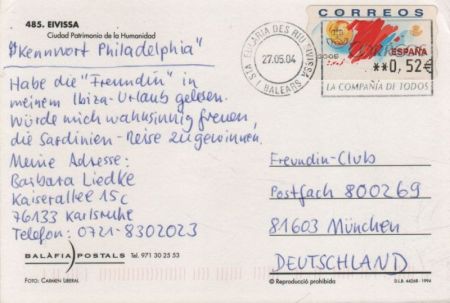 485. EIVISSA
Ciudad Patrimonio de la Humanidad
"Kennwort Philadelphia"
Habe die "Freundin" in
meinem Ibiza-Urlaub gelesen.
Würde mich wahnsinnig freuen,
die Sardinien-Reise zu gewinnen.
Meine Adresse:
Barbara Liedke
Kaiserallee 15c
76133 Karlsruhe
Telefon: 0721-8302023
BALÀFIA POSTALS Tel. 971 30 25 53
FOTO: CARMEN LIBERAL
CORREOS
ESPAÑA
**0,52€
27.05.04
LA COMPAÑIA DE TODOS
STA EULARIA DES RIU
BALEARS
Freundin-Club
Postfach 800269
81603 München
DEUTSCHLAND
© Reproducció prohibida
D.L.B. 44268 - 1994